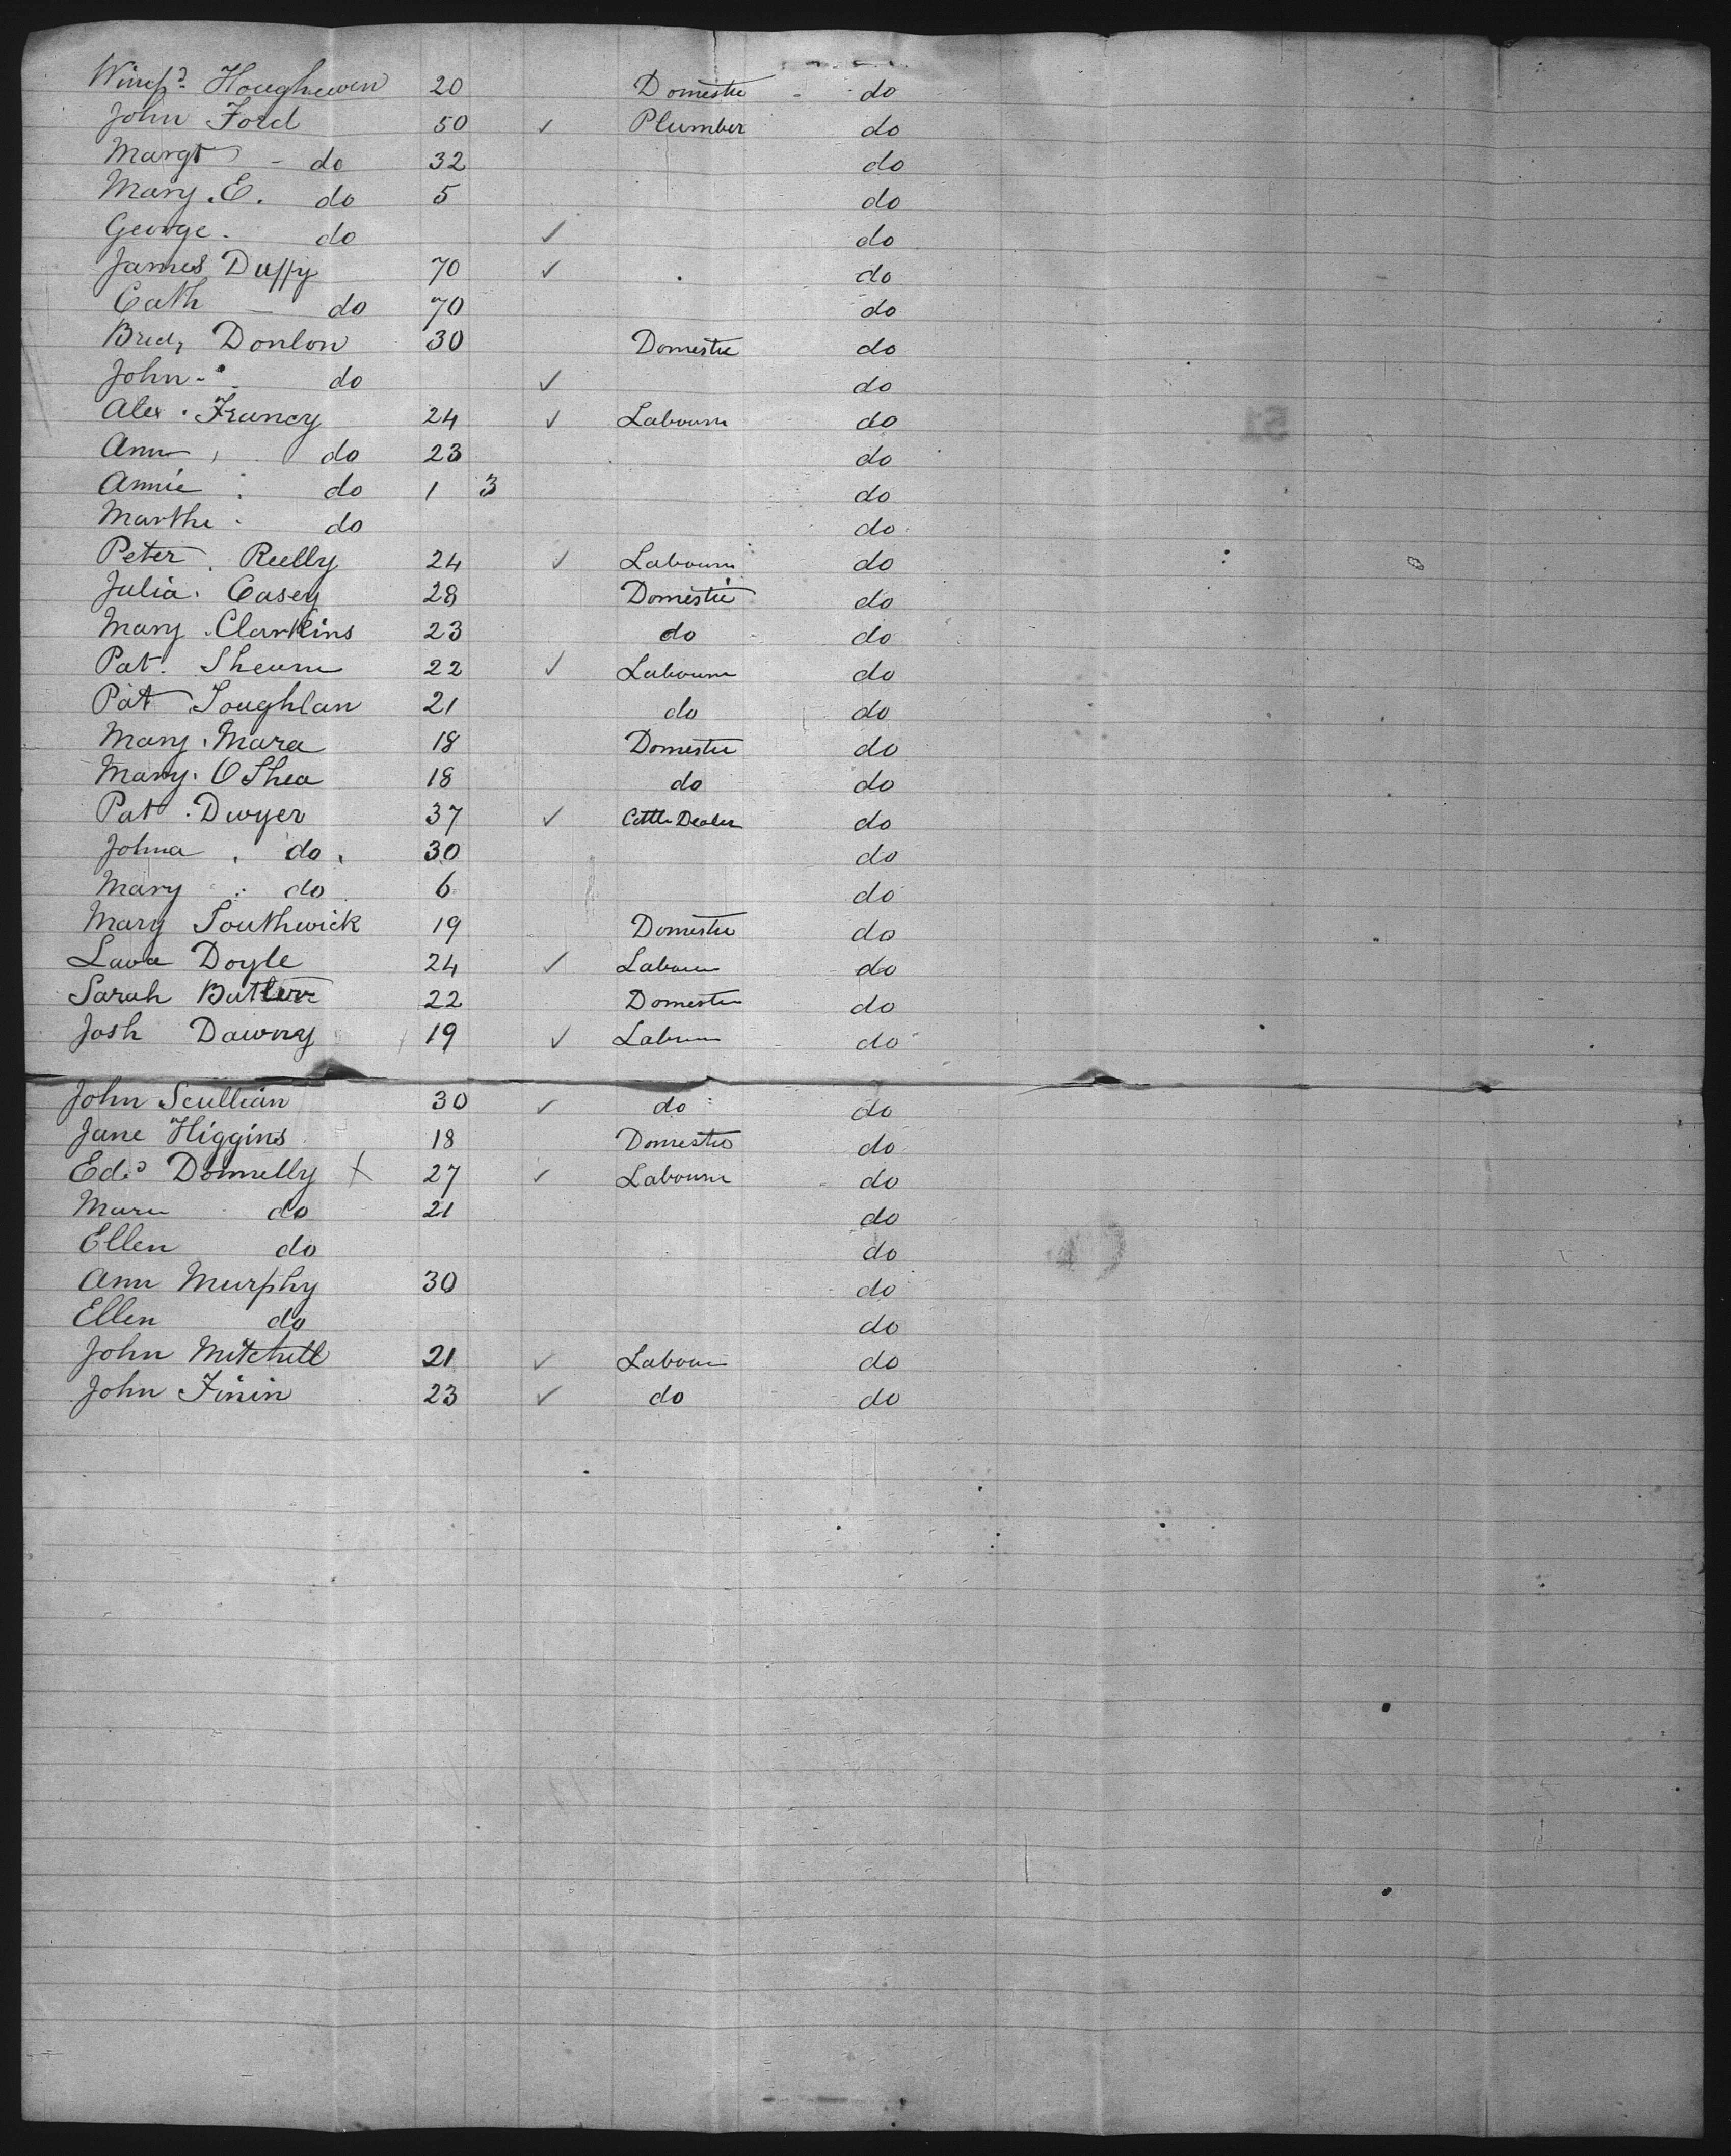 Winf^d Houghewen 20 Domestic do
John Ford 50 ✓ Plumber do
Margt do 32 do
Mary. E. do 5 do
George. do ✓ do
James Duffy 70 ✓ do
Cath do 70 do
Brid, Donlon 30 Domestic do
John do ✓ do
Alex. Francy 24 ✓ Labourer do
Ann do 23 do
Annie do 1 3 do
Martha do do
Peter. Reilly 24 ✓ Labourer do
Julia. Casey 28 Domestic do
Mary. Clarkins 23 do do
Pat. 22 ✓ Labourer do
Pat Loughlan 21 do do
Mary. Mara 18 Domestic do
Mary. O Shea 18 do do
Pat. Dwyer 37 ✓ Cattle Dealer do
Johna do 30 do
Mary do 6 do
Mary Southwick 19 Domestic do
Doyle 24 ✓ Labourer do
Sarah Butler 22 Domestic do
Josh Dawny 19 ✓ Labourer do
John Scullian 30 ✓ do do
Jane Higgins 18 Domestic do
Ed.^d Donnelly X 27 ✓ Labourer do
do 21 do
Ellen do do
Ann Murphy 30 do
Ellen do do
John Mitchell 21 ✓ Labourer do
John Finin 23 ✓ do do